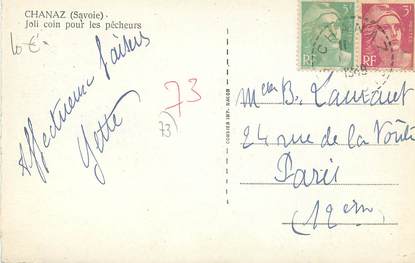 CHANAZ (Savoie) -
Joli coin pour les pêcheurs
10 €-
Affectueux baisers
Yette
73
73
COMBIER IMP. MACON
3F
RF
3F
RF
CHANAZ
1949
B. Lanfant
24 rue de la Voûte
Paris